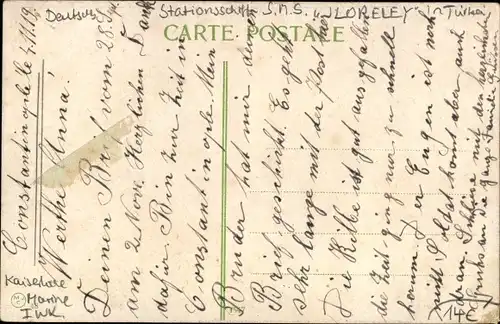 Deutsches Stationsschiff S.M.S. "LORELEY" in Türkei
CARTE POSTALE
Constantinopel 4.11.19
Werthe Anna!
Deinen Brief vom 28.
am 2 Nov. Herzlichen Dank
dafür Bin zur Zeit in
Constantinopel. Mein
Bruder hat mir deinen
Brief geschickt. Es geht
sehr lange mit der Post her
Die Kilbe ist gut ausgefallen
die Zeit ging nur zu schnell
herum. Der Eugen ist noch
nicht Soldat komt aber auch
dran Schliese mit den herzlichsten
Gruss an die ganze Familie
Kaiserliche
Marine
I WK
14€